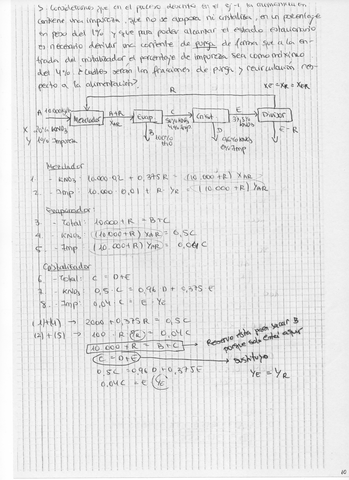 > Consideremos que en el proceso descrito en el ej-1 la alimentación
contiene una impureza, que no se evapora ni cristaliza, en un porcentaje
en peso del 1% y que para poder alcanzar el estado estacionario
es necesario derivar una corriente de purga de forma que a la en-
trada del cristalizador el porcentaje de impureza sea como máximo
del 4% ¿cuáles serán las fracciones de purga y recirculación res-
pecto a la alimentación?
R
XE = XR
A 10.000 Kg/h
Mezclador
A+R
XAR
Evap.
C
50% KNO3
4% Imp
Crist
E
37,5%
KNO3
Divisor
X 20% KNO3
Y 1% Impureza
B 100%
H2O
D
96% KNO3
E-R
Mezclador
1. - KNO3: 10.000·0,2 + 0,375R = (10.000+R) XAR
2. - Imp: 10.000·0,01 + R·YR = (10.000+R) YAR
Evaporador:
3 - Total: 10.000+R = B+C
4 - KNO3: (10.000+R) XAR = 0,5C
5. - Imp (10.000+R) YAR = 0,04C
Cristalizador
6 - Total: C = D+E
7. - KNO3 0,5·C = 0,96D + 0,375E
8. - Imp: 0,04C = E·YE
(1)+(4) → 2000 + 0,375R = 0,5C
(2)+(5) → 100 + R·YR = 0,04C
10.000+R = B+C
Reservo esta para sacar B
porque solo está aquí
C = D+E
sustituyo
0,5C = 0,96D + 0,375E
0,04C = E·YE
YE = YR
10